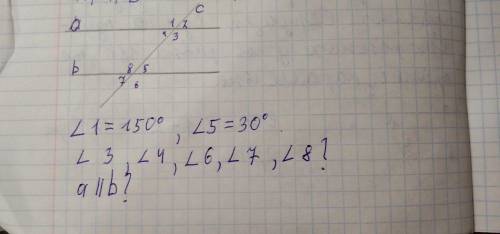 c
a 1 2
3
b 8 5
7 6
∠1=150°, ∠5=30°.
∠3, ∠4, ∠6, ∠7, ∠8?
a∥b?